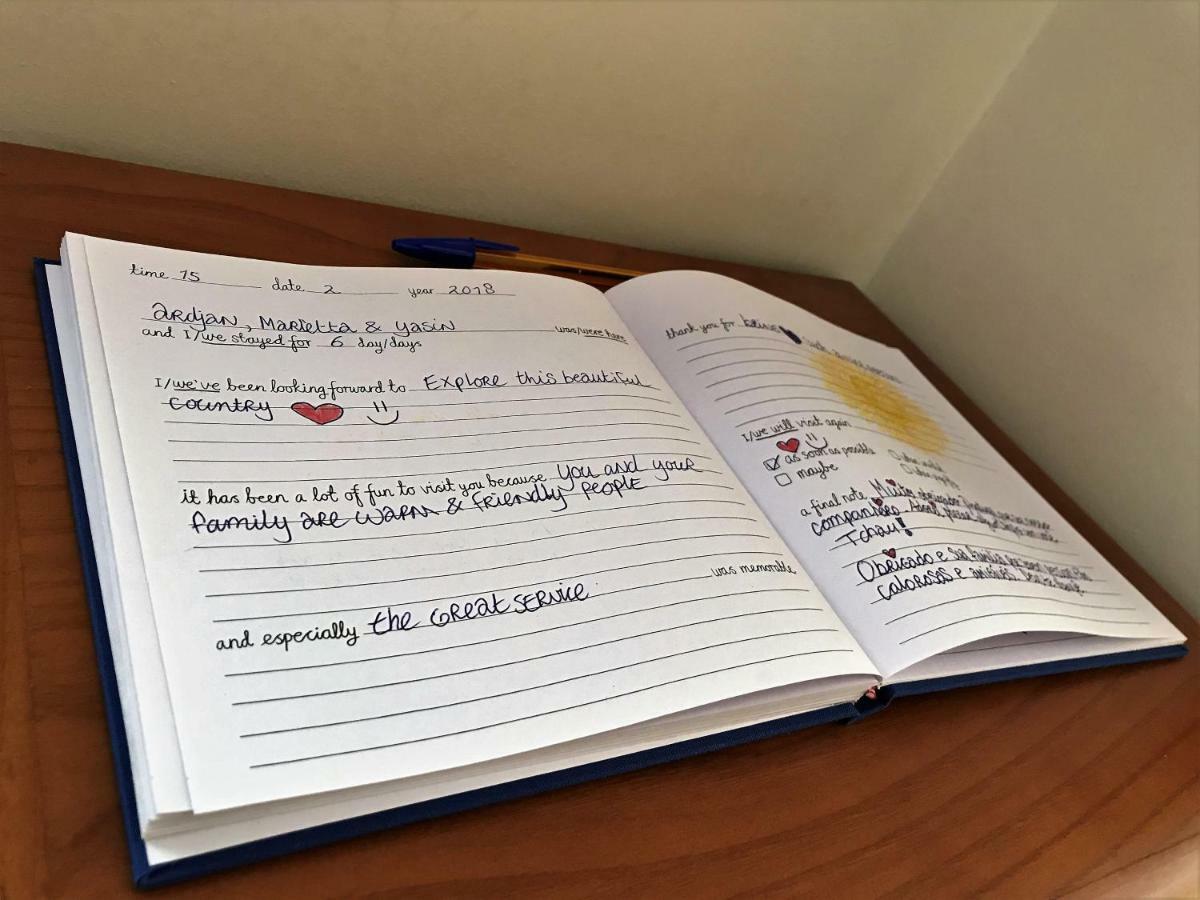 time 15 date 2 year 2018
Ardjan, Marietta & Yasin was/were here
and I/we stayed for 6 day/days
I/we've been looking forward to Explore this beautiful
country
it has been a lot of fun to visit you because you and your
family are warm & friendly people
was memorable
and especially the Great SERVICE
thank you for
I/we will visit again
as soon as possible
maybe
a final note Muito obrigado
companheiro
Tchau!
Obrigado e sua familia
calorosas e